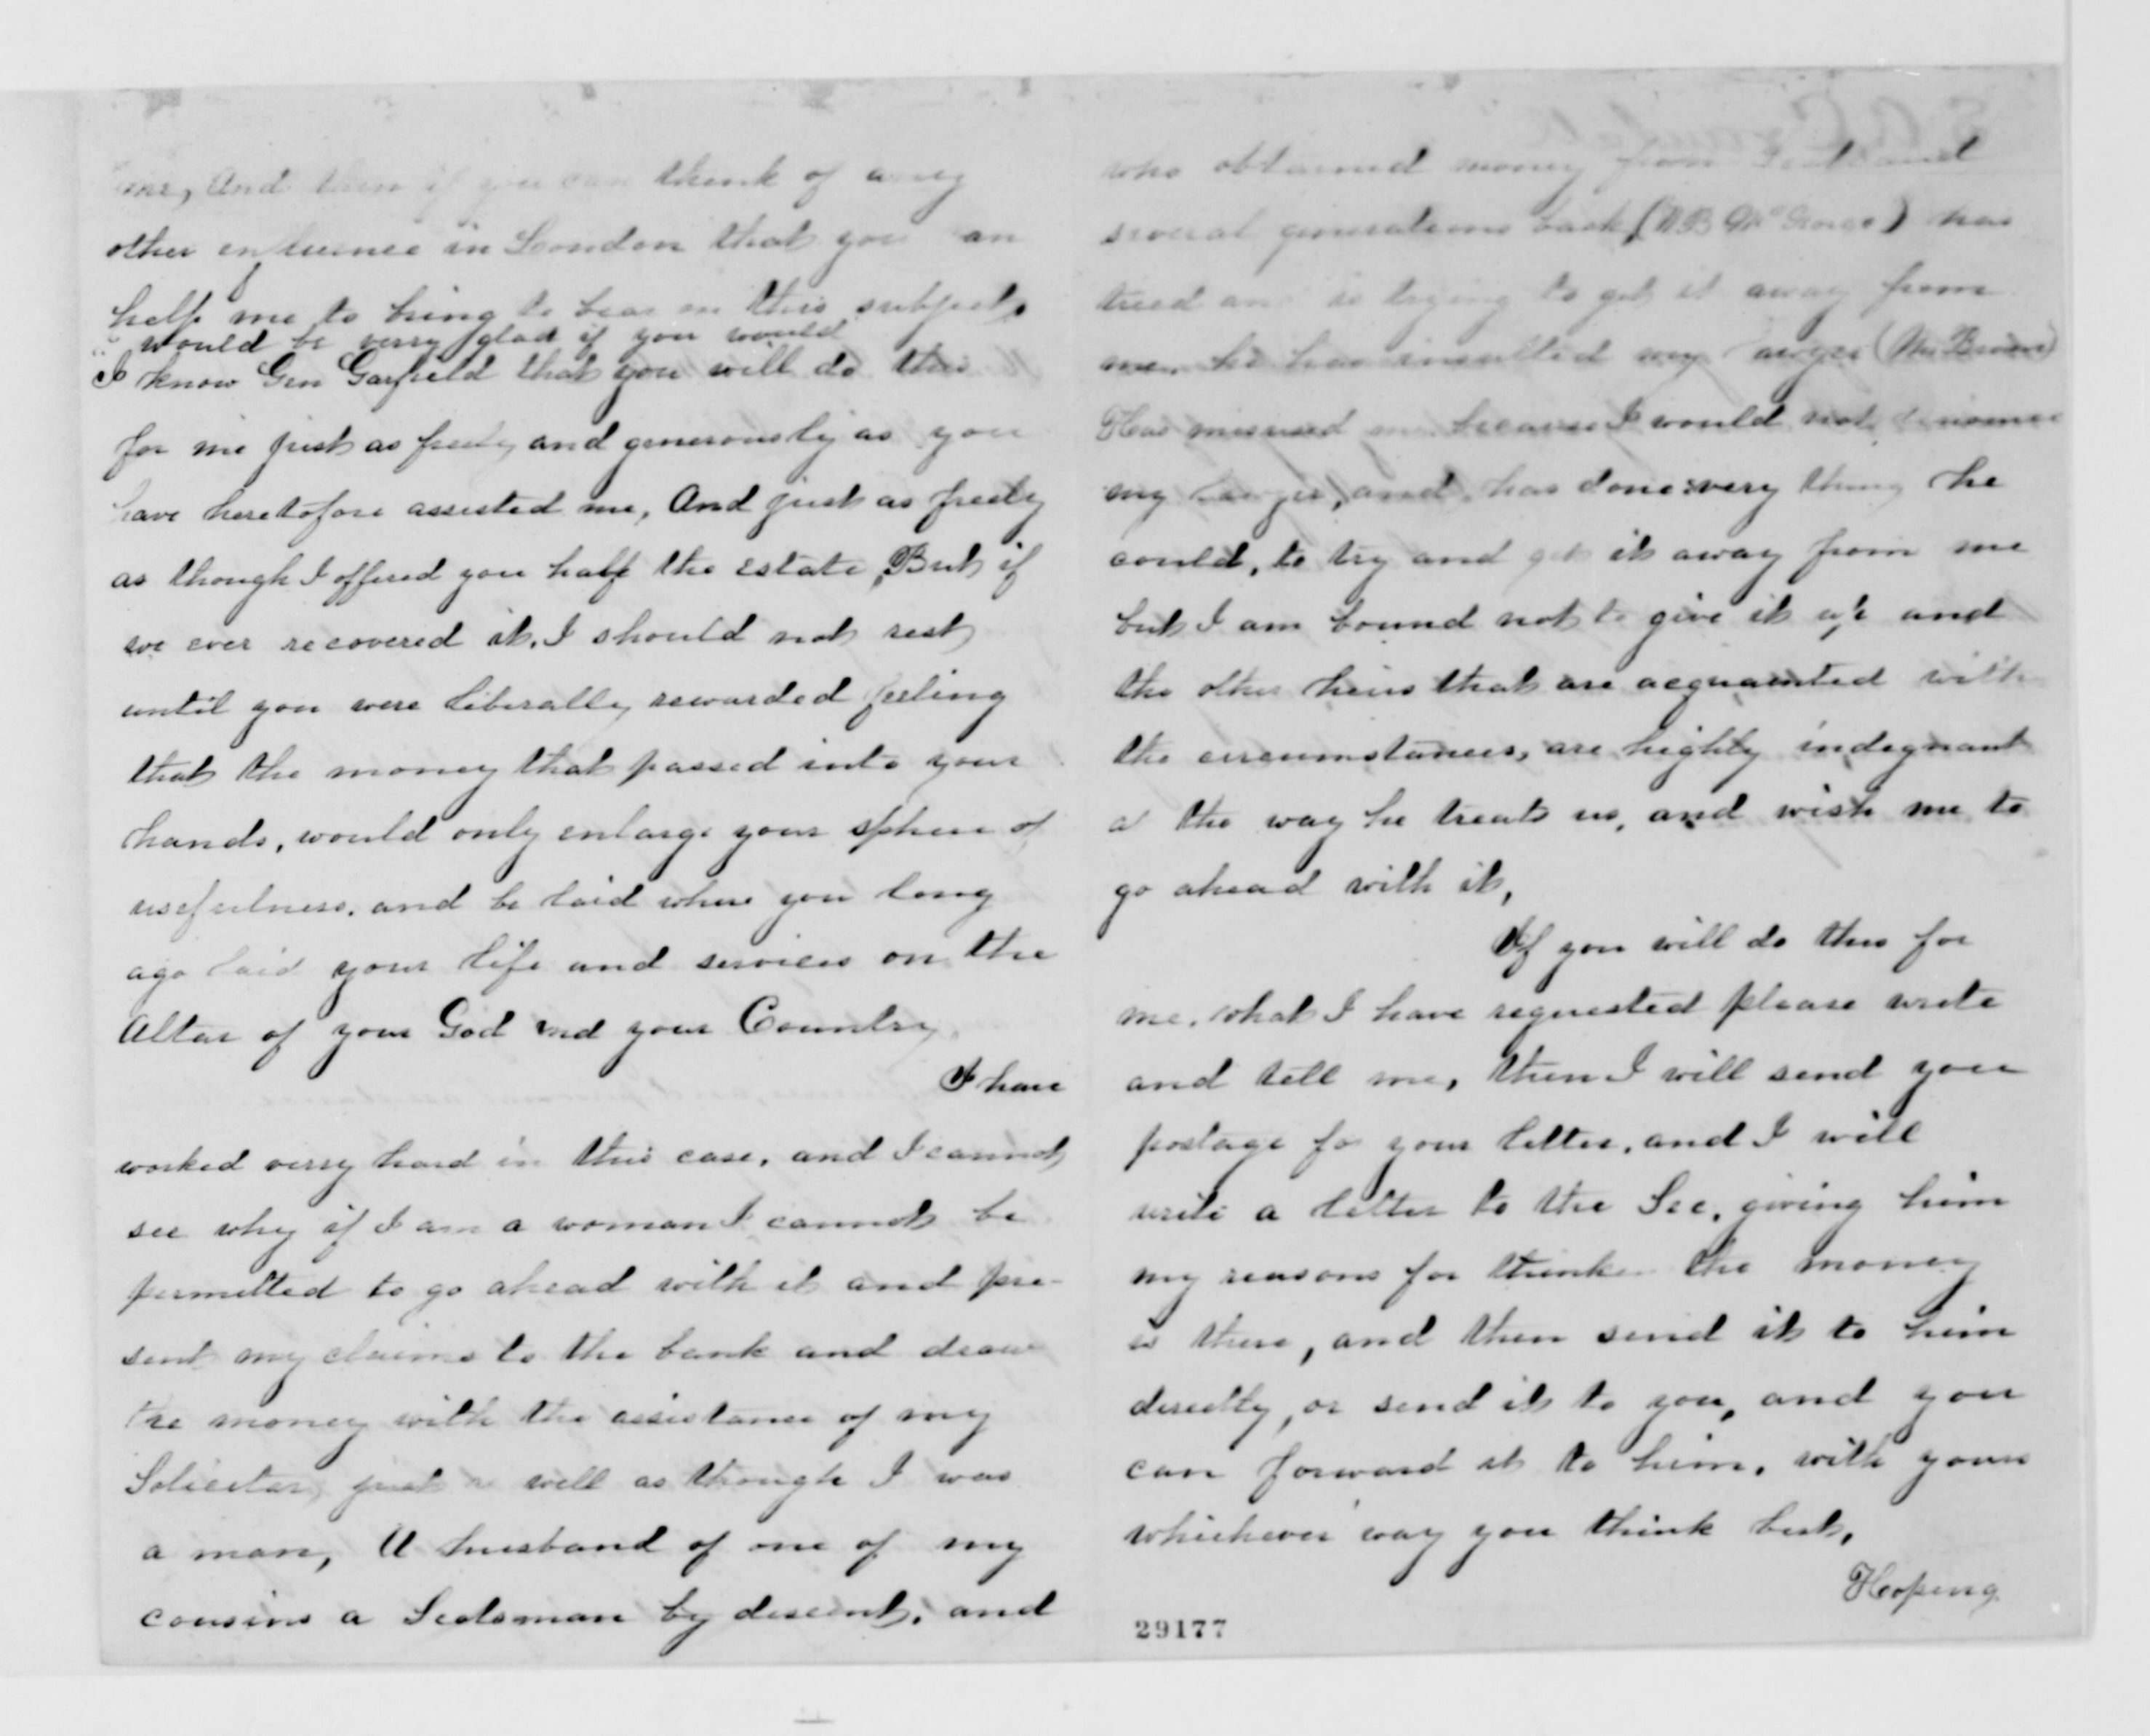 me, And then if you can think of any
other influence in London that you can
help me to bring to bear on this subject,
I would be verry glad if you would
I know Gen Garfield that you will do this
for me just as freely and generously as you
have heretofore assisted me, And just as freely
as though I offered you half the estate, But if
we ever recovered it, I should not rest
until you were liberally rewarded feeling
that the money that passed into your
hands, would only enlarge your sphere of
usefulness, and be laid where you long
ago laid your life and services on the
Altar of your God and your Country,
I have
worked verry hard in this case, and I cannot
see why if I am a woman I cannot be
permitted to go ahead with it and pre-
sent my claims to the bank and draw
the money with the assistance of my
Solicitor, just as well as though I was
a man, A husband of one of my
cousins a Scotsman by descent, and
who obtained money from Scotland
several generations back ( ) has
tried and is trying to get it away from
me. he has insulted my lawyer (Mr Brown)
Has misused me because I would not denounce
my lawyer, and has done every thing he
could, to try and get it away from me
but I am bound not to give it up and
the other heirs that are acquainted with
the circumstances, are highly indegnant
at the way he treats us, and wish me to
go ahead with it,
If you will do this for
me, what I have requested please write
and tell me, then I will send you
postage for your letter, and I will
write a letter to the Sec, giving him
my reasons for thinking the money
is there, and then send it to him
directly, or send it to you, and you
can forward it to him, with yours
whichever way you think best,
Hoping
29177